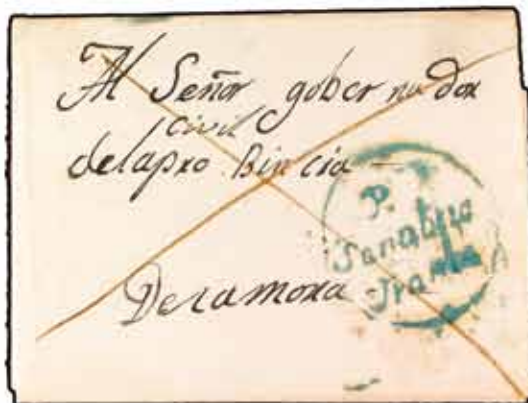 Al Señor gobernador
civil
delapro Bincia
Dezamora
P.
Sanabria
Franca